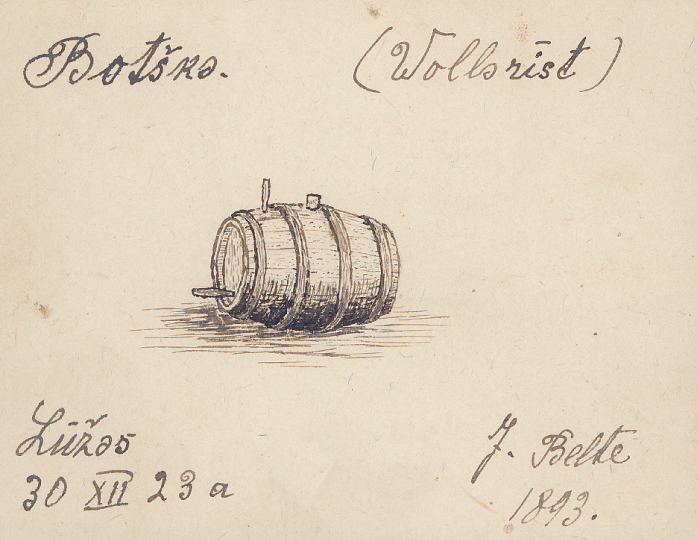 Botškǝ. (Vollǝrīst)
Lūžǝs
30 XII 23 a
J. Belte
1893.